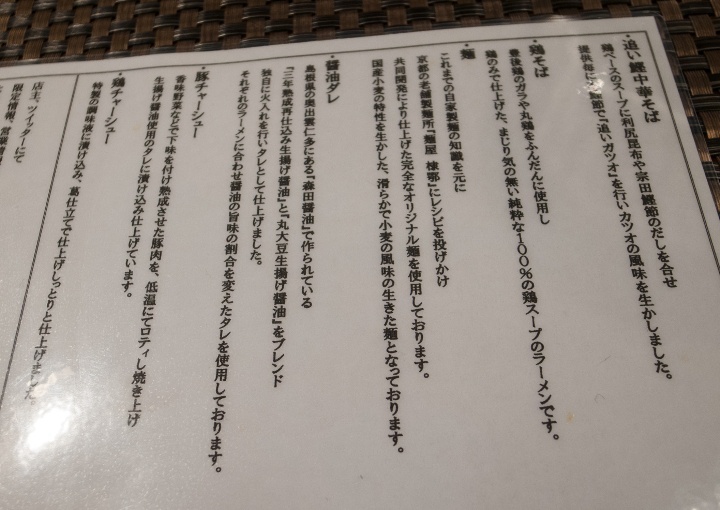 ・追い鰹中華そば
鶏ベースのスープに利尻昆布や宗田鰹節のだしを合せ
提供毎に 節で『追いガツオ』を行いカツオの風味を生かしました。
・鶏そば
豊後鶏のガラや丸鶏をふんだんに使用し
鶏のみで仕上げた、まじり気の無い純粋な100%の鶏スープのラーメンです。
・麺
これまでの自家製麺の知識を元に
京都の老舗製麺所『麺屋 棣鄂』にレシピを投げかけ
共同開発により仕上げた完全なオリジナル麺を使用しております。
国産小麦の特性を生かした、滑らかで小麦の風味の生きた麺となっております。
・醤油ダレ
島根県の奥出雲仁多にある『森田醤油』で作られている
『三年熟成再仕込み生揚げ醤油』と『丸大豆生揚げ醤油』をブレンド
独自に火入れを行いタレとして仕上げました。
それぞれのラーメンに合わせ醤油の旨味の割合を変えたタレを使用しております。
・豚チャーシュー
香味野菜などで下味を付け熟成させた豚肉を、低温にてロティし焼き上げ
生揚げ醤油使用のタレに漬け込み仕上げています。
・鶏チャーシュー
特製の調味液に漬け込み、葛仕立てで仕上げしっとりと仕上げました。
店主、ツイッターにて
限定情報、営業